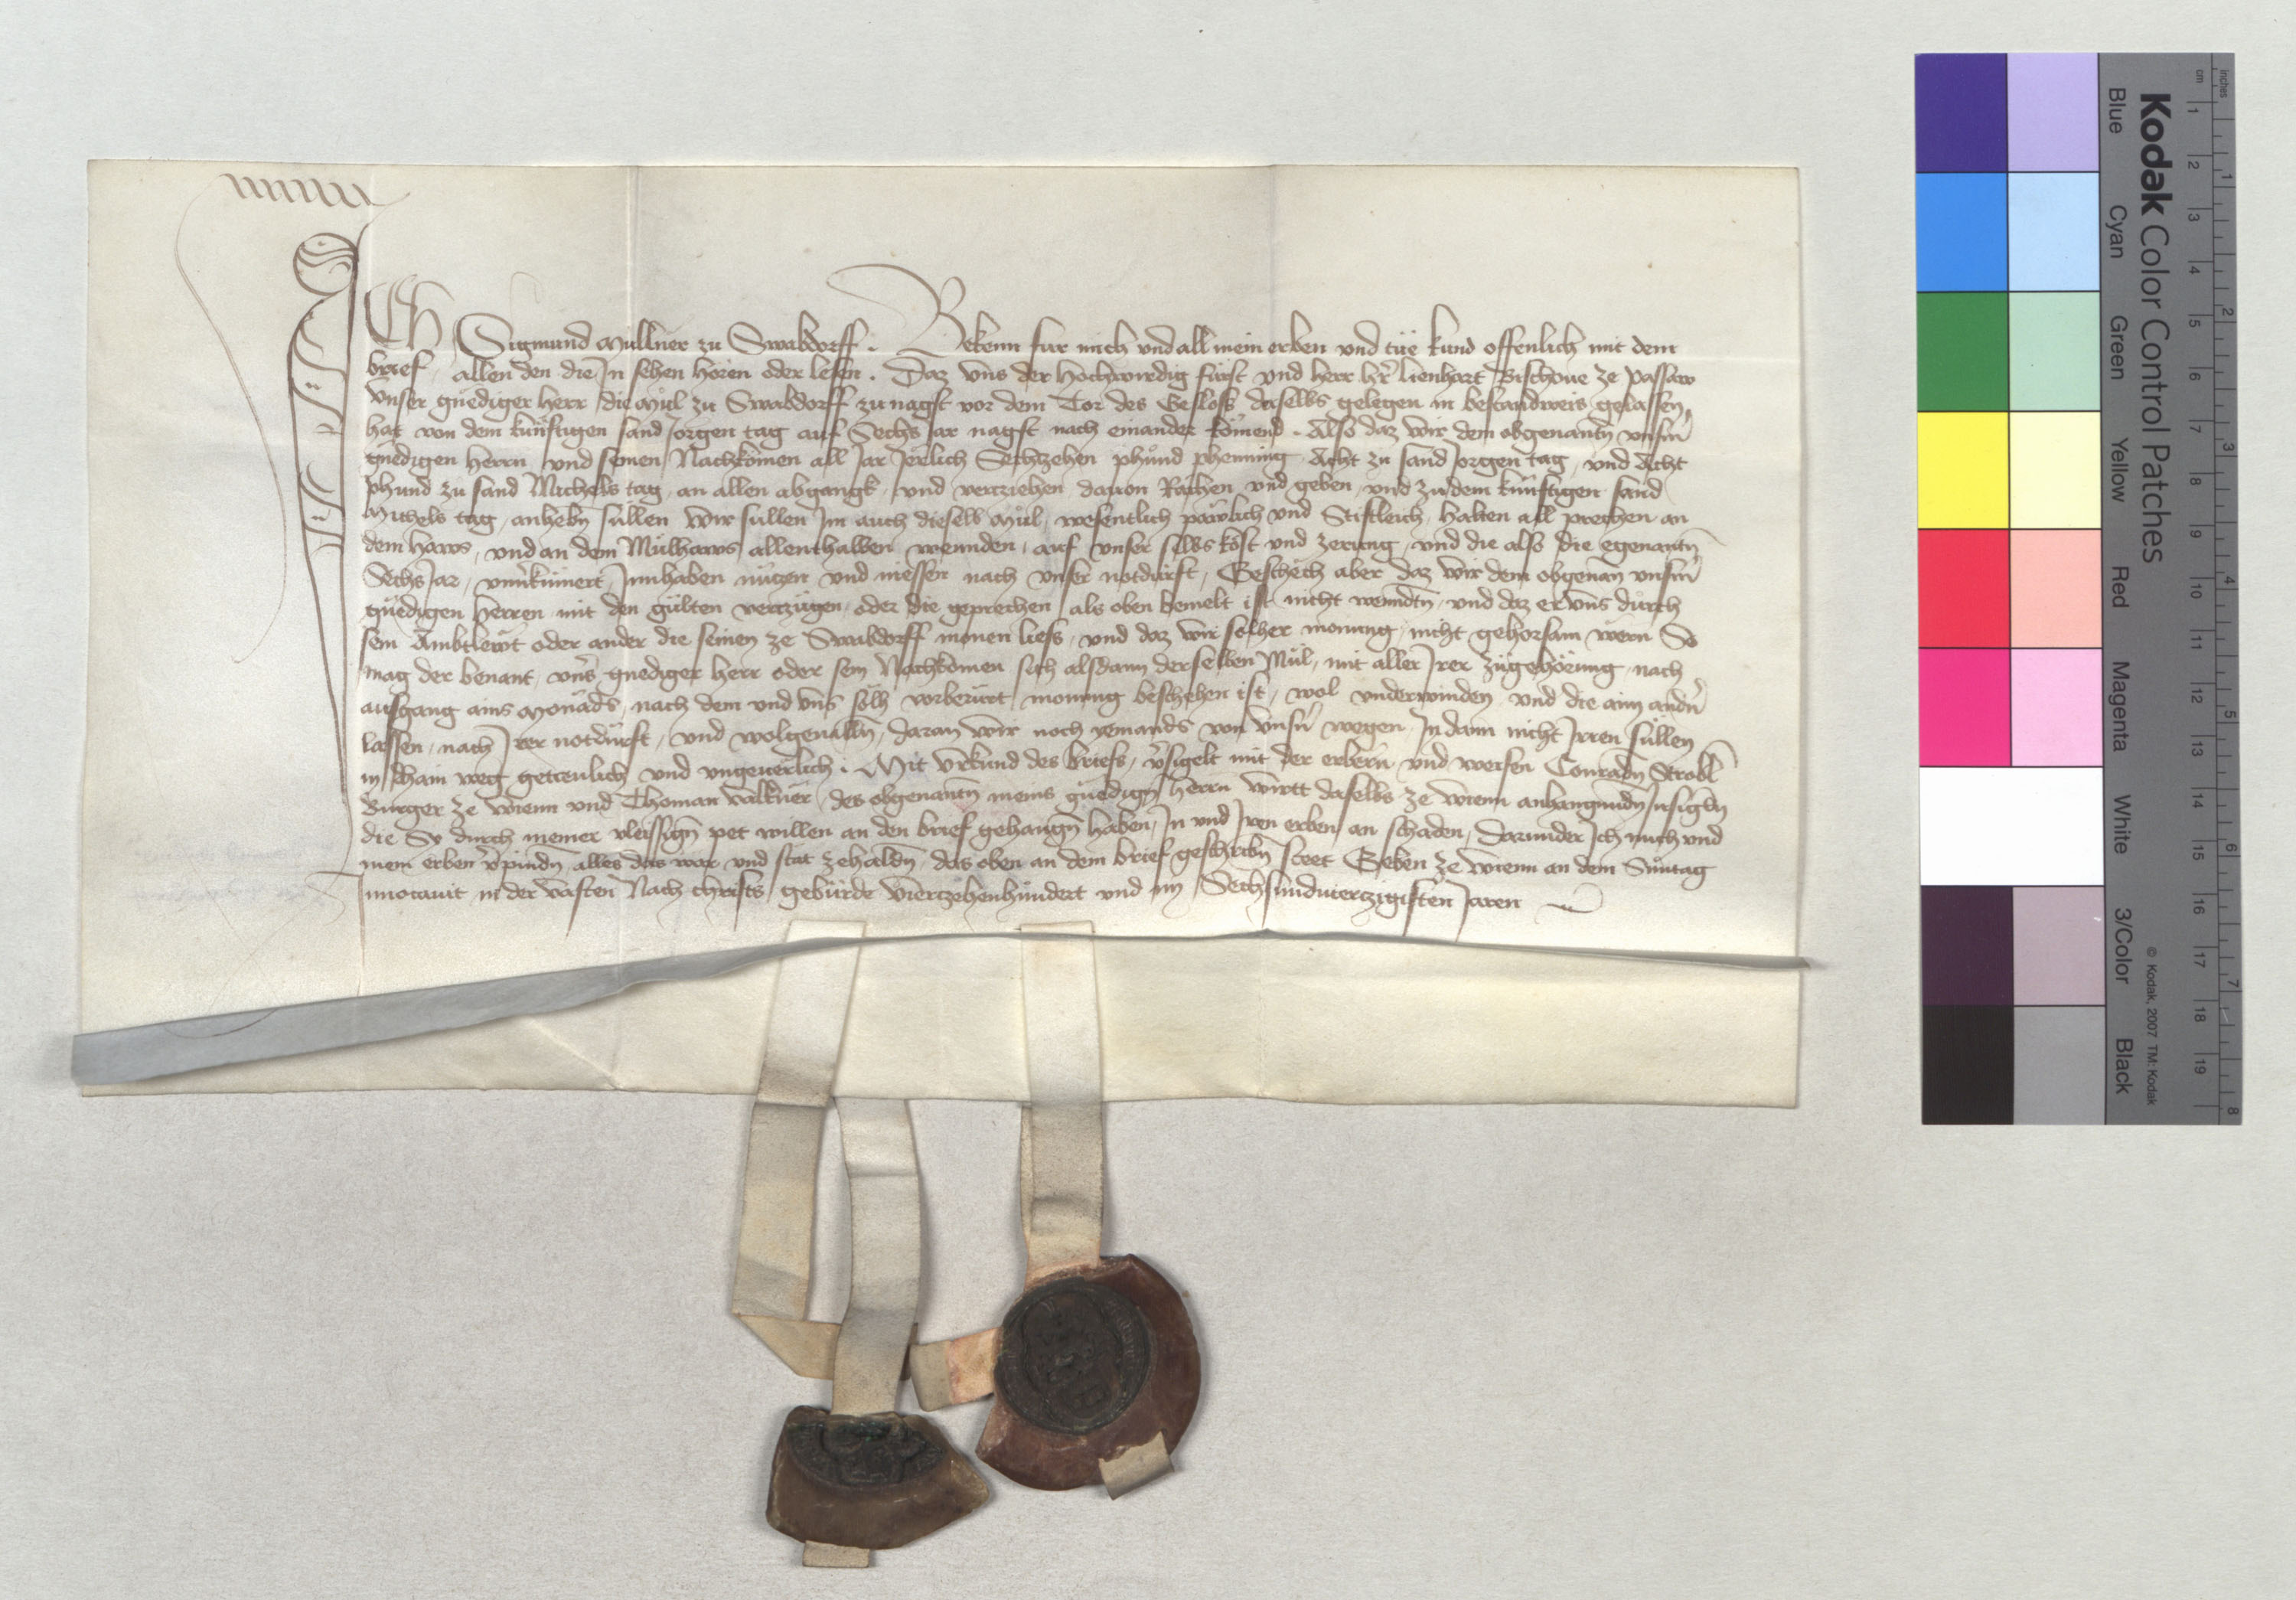 Ich Sigmund Mullner zu Swabdorff. Bekenn fur mich vnd all mein erben vnd tue kund offenlich mit dem
brief, allen den die In sehen hören oder lesen. Daz vns der Hochwirdig fürst vnd herr hr̄ Lienhart Bischoue ze passaw
vnser gnediger herr die Mül zu Swabdorff zu nagst vor dem Tor des Gesloss daselbs gelegen in bestandweis gelassen
hat von dem künftigen sand Jorgen tag auf Sechs Jar nagst nach einander kömend. Also daz wir dem obgenantn̄ vnsm̄
gnedigen herrn vnd seinen Nachkömen all Jar Jerlich Sechtzehen phund phenning, Acht zu sand Jorgen tag, vnd Acht
phund zu sand Michels tag, an allen abgangk, vnd verziehen dauon Raichen vnd geben, vnd zu dem künftigen sand
Michels tag, anhebn̄ sullen wir sullen Im auch dieselb Mül, wesentlich päwlich vnd Stiftleich, halten all prechen an
dem haws, vnd an dem Mülhaws allenthalben wennden, auf vnser selbs kost vnd zerung, vnd die also die egenantn̄
Sechs Jar, vnu̇kümert, Innhaben nützen vnd niessen nach vnser notdurft, Geschech aber daz wir dem obgenan̄ vnsm̄
gnedigen herren mit den gülten verzügen, oder die geprechen als oben bemelt ist nicht wenndtn̄, vnd daz er vns durch
sein Ambtlewt oder ander die seinen ze Swabdorff monen liess, vnd daz wir solher monung, nicht gehorsam wern So
mag der benant, vns̄ gnediger herr oder sein Nachkömen sich alsdann derselben Mül, mit aller Irer zugehörung, nach
ausgang ains Monads, nach dem vnd vns sölh vorberürt monung beschehen ist, wol vnderwinden vnd die aim andn̄
lassen, nach Irer notdurft, vnd wolgeualln̄, daran wir noch yemands von vnsn̄ wegen, In dann nicht Irren sullen
in dhain weg getreulich vnd vngeuerlich. Mit vrkund des briefs, v̄sigelt mit der erbern vnd weisen Conradn̄ Strobl̄
Burger ze wienn vnd Thoman valkner, des obgenantn̄ meins gnedign̄ herrn wirtt daselbs ze wienn anhangundn̄ Insigln̄
die Sy durch meiner vleissign̄ pet willen an den brief gehangn̄ haben, In vnd Iren erben an schaden, Darunder Ich mich vnd
mein erben v̄pindn̄, alles das war vnd stat zehaldn̄, das oben an dem brief geschribn̄ steet Geben ze wienn an dem Suntag
Inuocauit in der vasten Nach christs gebürde vierzehenhundert vnd im Sechsundvierzigisten Jaren
Kodak Color Control Patches
Blue Cyan Green Yellow Red Magenta White 3/Color Black
© Kodak, 2007 TM: Kodak
cm 1 2 3 4 5 6 7 8 9 10 11 12 13 14 15 16 17 18 19
Inches 1 2 3 4 5 6 7 8